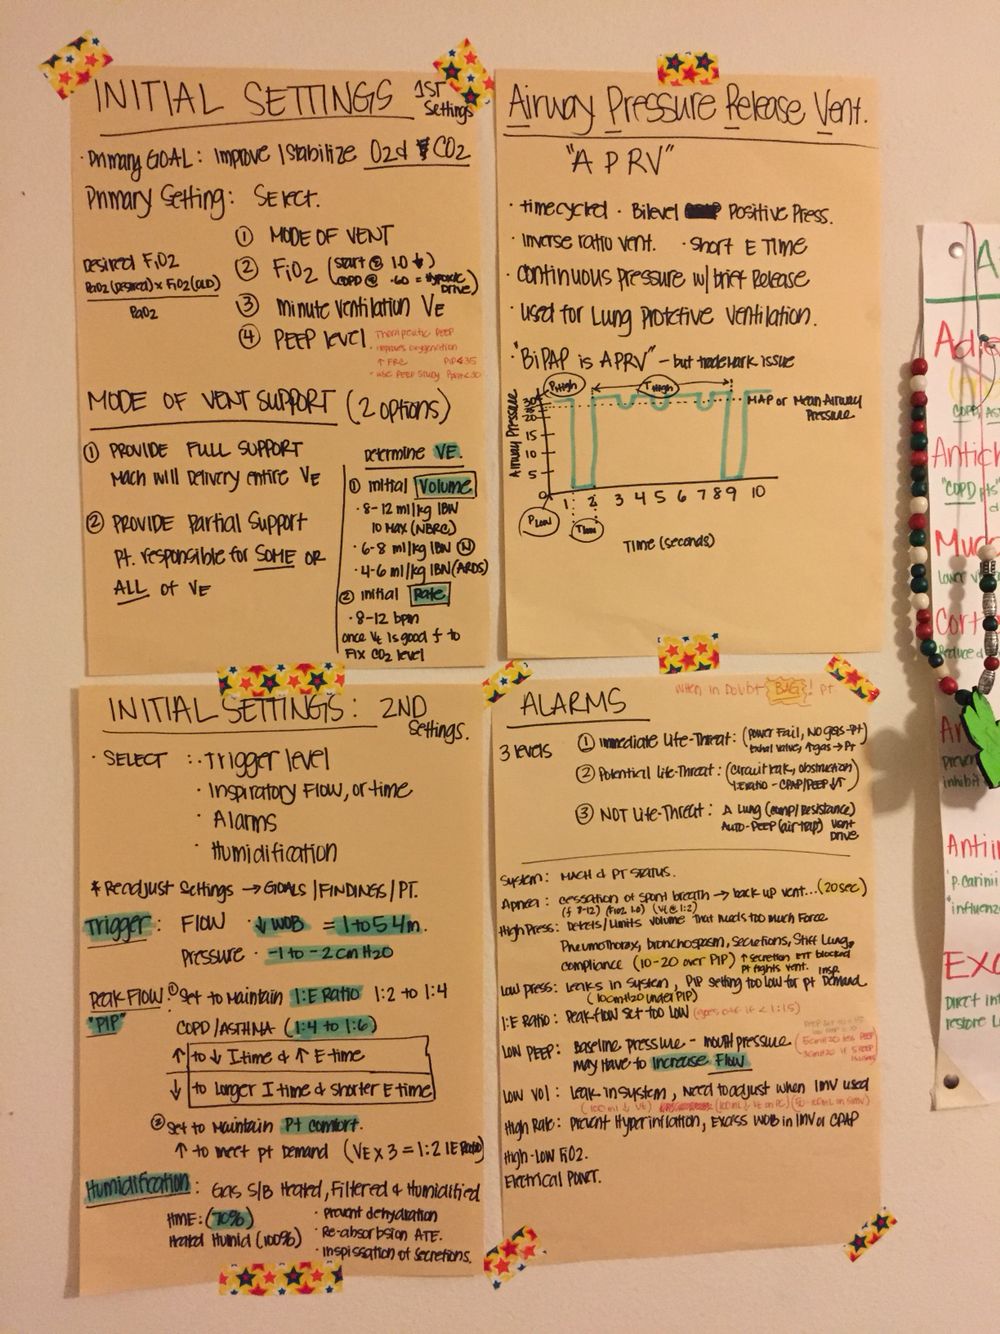 INITIAL SETTINGS 1ST Settings
· Primary GOAL: Improve / Stabilize O2 & CO2
Primary Setting: Select.
① MODE OF VENT
② FiO2 (start @ 1.0 ↓)
(COPD @ .60 = Hypoxic Drive)
③ minute ventilation VE
④ PEEP level
Therapeutic PEEP
· improves oxygenation
↑ FRC PIP<35
Desired FiO2
PaO2 (Desired) x FiO2 (OLD)
PaO2
MODE OF VENT SUPPORT (2 options)
① PROVIDE FULL SUPPORT
Mach will Delivery entire VE
② PROVIDE Partial Support
Pt. responsible for SOME OR
ALL of VE
Determine VE.
① initial Volume
· 8-12 ml/kg IBW
10 Max (NBRC)
· 6-8 ml/kg IBW Ⓝ
· 4-6 ml/kg IBW (ARDS)
② initial Rate
· 8-12 bpm
once VE is good f to
Fix CO2 level
Airway Pressure Release Vent.
"APRV"
· timecycled · Bilevel Positive Press.
· inverse ratio vent. · Short E TIME
· continuous pressure w/ brief Release
· used for Lung Protetive Ventilation.
· "BiPAP is APRV" - but trademark issue
PHigh
THigh
MAP or Mean Airway
Pressure
Airway Pressure
30
25
20
15
10
5
0
1 2 3 4 5 6 7 8 9 10
PLow
TLow
Time (seconds)
INITIAL SETTINGS: 2ND Settings.
· SELECT :· Trigger level
· Inspiratory Flow, or time
· Alarms
· Humidification
* Readjust Settings → GOALS / FINDINGS / PT.
Trigger: FLOW · ↓ WOB = 1 to 5 Lm.
Pressure · -1 to -2 cmH2O
Peak Flow: ① Set to Maintain I:E Ratio 1:2 to 1:4
"PIP"
COPD/ASTHMA (1:4 to 1:6)
↑ to ↓ I time & ↑ E time
↓ to Longer I time & shorter E time
② Set to Maintain Pt comfort.
↑ to meet pt Demand (VE x 3 = 1:2 IE Ratio)
Humidification: Gas S/B Heated, Filtered & Humidified
HME: (70%)
Heated Humid (100%)
· Prevent dehydration
· Re-absorbsion ATE.
· Inspissation of secretions.
When in Doubt BAG! pt
ALARMS
3 levels
① Immediate Life-Threat: (Power Fail, NO gas-pt)
Exhal valve, ↑ gas → Pt
② Potential Life-Threat: (circuit leak, obstruction)
I:E ratio - CPAP/PEEP ↓↑
③ NOT Life-Threat: Δ Lung (comp/Resistance)
AUTO-PEEP (air trap) Vent Drive
System: MACH & PT STATUS.
Apnea: cessation of spont breath → back up vent... (20sec)
(f 8-12) (FiO2 1.0)
High Press: Detects/Limits Volume that needs too much Force
Pneumothorax, bronchospasm, secretions, Stiff Lung,
compliance (10-20 over PIP) ↑ secretion ETT blocked
Pt fights vent.
Low Press: Leaks in System, PIP setting too low for pt insp. Demand
(10cmH20 under PIP)
I:E Ratio: Peak flow set too low (goes off if < 1:1.5)
Low PEEP: Baseline pressure - mouth pressure
may have to increase Flow
Low Vol: Leak in system, Need to adjust when IMV used
(100 ml ↓ Vt)
High Rate: Prevent Hyperinflation, Excess WOB in IMV or CPAP
High-Low FiO2.
Electrical Power.
Antich
"COPD pts"
Muc
Cort
Antiin
"P. carinii
"influenza
Direct int
restore L